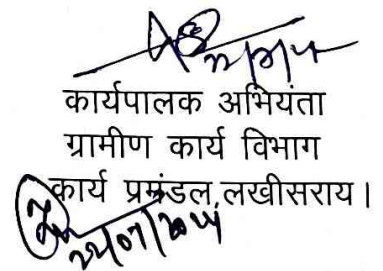 कार्यपालक अभियंता
ग्रामीण कार्य विभाग
कार्य प्रमंडल, लखीसराय।